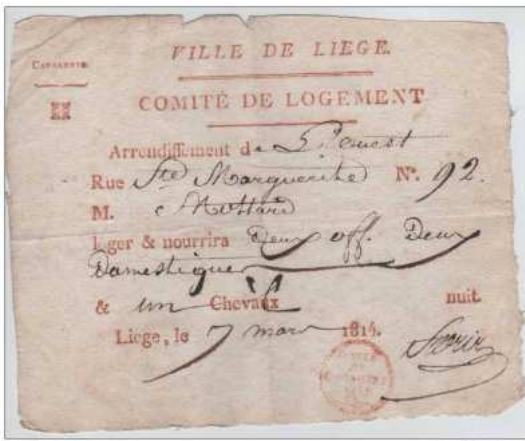 VILLE DE LIEGE.
CAVALERIE.
COMITÉ DE LOGEMENT
Arrondissement de L'ouest
Rue Ste Marguerite N°. 92.
M. Mottard
loger & nourrira Deux off. Deux
Domestiques
& un Chevaux nuit
Liege, le 7 mars 1814.